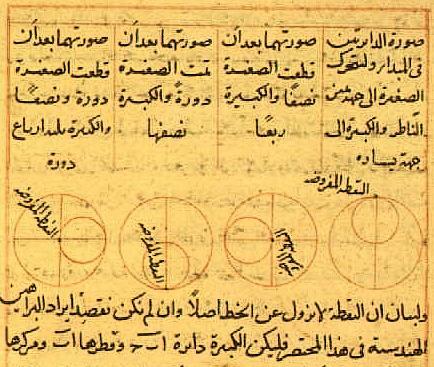 صورة الدايرتين
في المبدا ولتتحرك
الصغيرة الى جهة يمين
الناظر والكبيرة الى
جهة يساره
صورتهما بعد أن
قطعت الصغيرة
نصفًا والكبيرة
ربعًا
صورتهما بعد أن
تمت الصغيرة
دورةً والكبيرة
نصفها
صورتهما بعد أن
قطعت الصغيرة
دورة ونصفًا
والكبيرة ثلثة ارباع
دورة
النقطة المفروضة
النقطة المفروضة
النقطة المفروضة
النقطة المفروضة
ولبيان ان النقطة لا تزول عن الخط اصلًا وان لم نكن نقصد ايراد البراهين
الهندسية في هذا المختصر فليكن الكبيرة دائرة وقطرها اب ومركزها